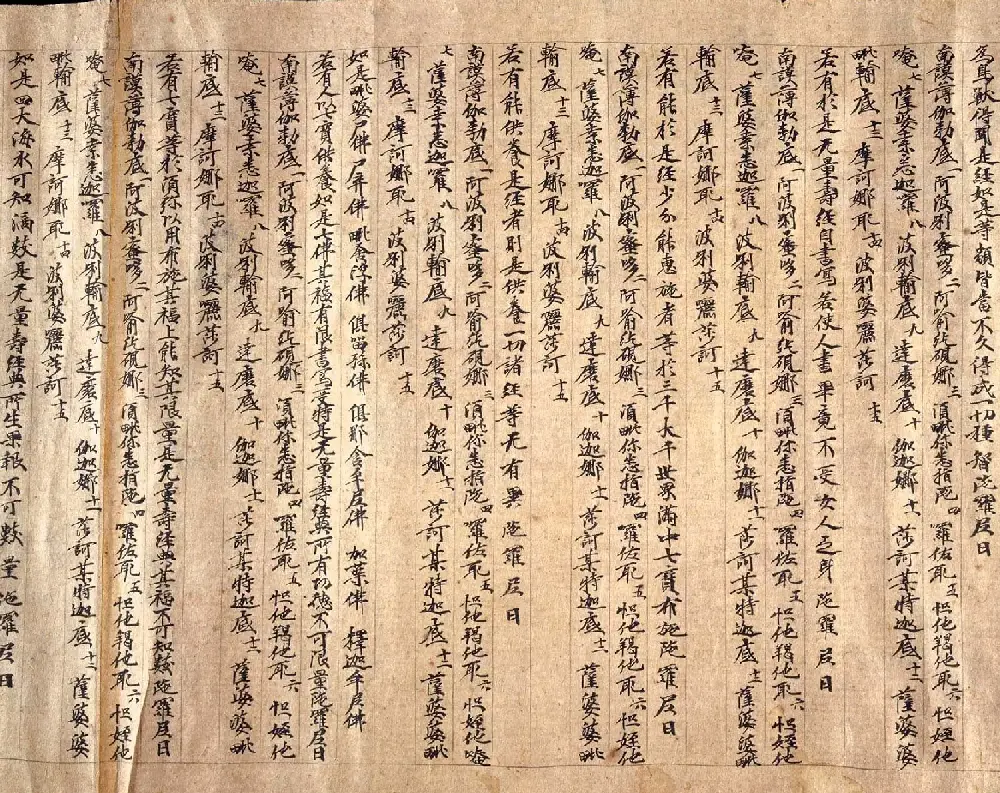 為鳥獸得聞是經如是等類皆當不久得成一切種智陀羅尼曰
南謨薄伽勃底一阿波唎蜜哆二阿喻紇硯娜三須毗你悉指陀四羅佐耶五怛他羯他耶六怛姪他
唵七薩婆桒悉迦羅八波唎輸底九達磨底十伽迦娜十一莎訶某特迦底十二薩婆婆
毗輸底十三摩訶娜耶十四波唎婆囇莎訶十五
若有於是无量壽經自書寫若使人書畢竟不受女人之身陀羅尼曰
南謨薄伽勃底一阿波唎蜜哆二阿喻紇硯娜三須毗你悉指陀四羅佐耶五怛他羯他耶六怛姪他
唵七薩婆桒悉迦羅八波唎輸底九達磨底十伽迦娜十一莎訶某特迦底十二薩婆婆毗
輸底十三摩訶娜耶十四波唎婆囇莎訶十五
若有能於是經少分能惠施者等於三千大千世界滿中七寶布施陀羅尼曰
南謨薄伽勃底一阿波唎蜜哆二阿喻紇硯娜三須毗你悉指陀四羅佐耶五怛他羯他耶六怛姪他
唵七薩婆桒悉迦羅八波唎輸底九達磨底十伽迦娜十一莎訶某特迦底十二薩婆婆毗
輸底十三摩訶娜耶十四波唎婆囇莎訶十五
若有能供養是經者則是供養一切諸經等无有異陀羅尼曰
南謨薄伽勃底一阿波唎蜜哆二阿喻紇硯娜三須毗你悉指陀四羅佐耶五怛他羯他耶六怛姪他唵
七薩婆桒悉迦羅八波唎輸底九達磨底十伽迦娜十一莎訶某特迦底十二薩婆婆毗
輸底十三摩訶娜耶十四波唎婆囇莎訶十五
如是毗婆尸佛尸棄佛毗舍浮佛俱留孫佛俱那含牟尼佛加葉佛釋迦牟尼佛
若有人以七寶供養如是七佛其福有限書寫受持是无量壽經典所有功德不可限量陀羅尼曰
南謨薄伽勃底一阿波唎蜜哆二阿喻紇硯娜三須毗你悉指陀四羅佐耶五怛他羯他耶六怛姪他
唵七薩婆桒悉迦羅八波唎輸底九達磨底十伽迦娜十一莎訶某特迦底十二薩婆婆毗
輸底十三摩訶娜耶十四波唎婆囇莎訶十五
若有七寶等於須弥以用布施其福上能知其限量是无量壽經典其福不可知數陀羅尼曰
南謨薄伽勃底一阿波唎蜜哆二阿喻紇硯娜三須毗你悉指陀四羅佐耶五怛他羯他耶六怛姪他
唵七薩婆桒悉迦羅八波唎輸底九達磨底十伽迦娜十一莎訶某特迦底十二薩婆婆
毗輸底十三摩訶娜耶十四波唎婆囇莎訶十五
如是四大海水可知滴數是无量壽經典所生果報不可數量陀羅尼曰